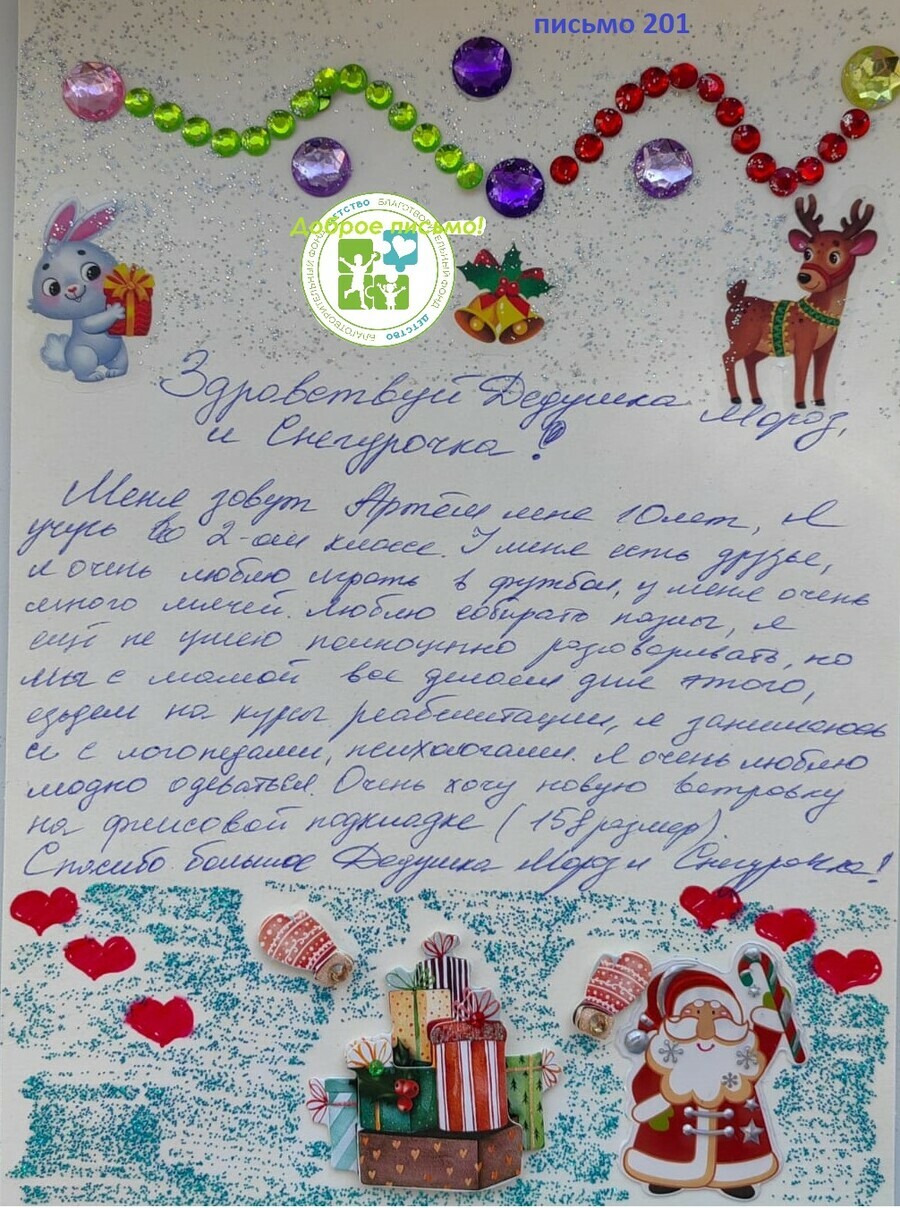 письмо 201
Доброе письмо!
БЛАГОТВОРИТЕЛЬНЫЙ ФОНД ДЕТСТВО БЛАГОТВОРИТЕЛЬНЫЙ ФОНД ДЕТСТВО
Здравствуй Дедушка Мороз,
и Снегурочка!
Меня зовут Артём мне 10 лет, я
учусь во 2-ом классе. У меня есть друзья,
я очень люблю играть в футбол, у меня очень
много мячей. Люблю собирать пазлы, я
ещё не умею полноценно разговаривать, но
мы с мамой все делаем для этого,
ездем на курсы реабилитации, я занимаюсь
с логопедами, психологами. Я очень люблю
модно одеваться. Очень хочу новую ветровку
на флисовой подкладке (158 размер).
Спасибо большое Дедушка Мороз и Снегурочка!